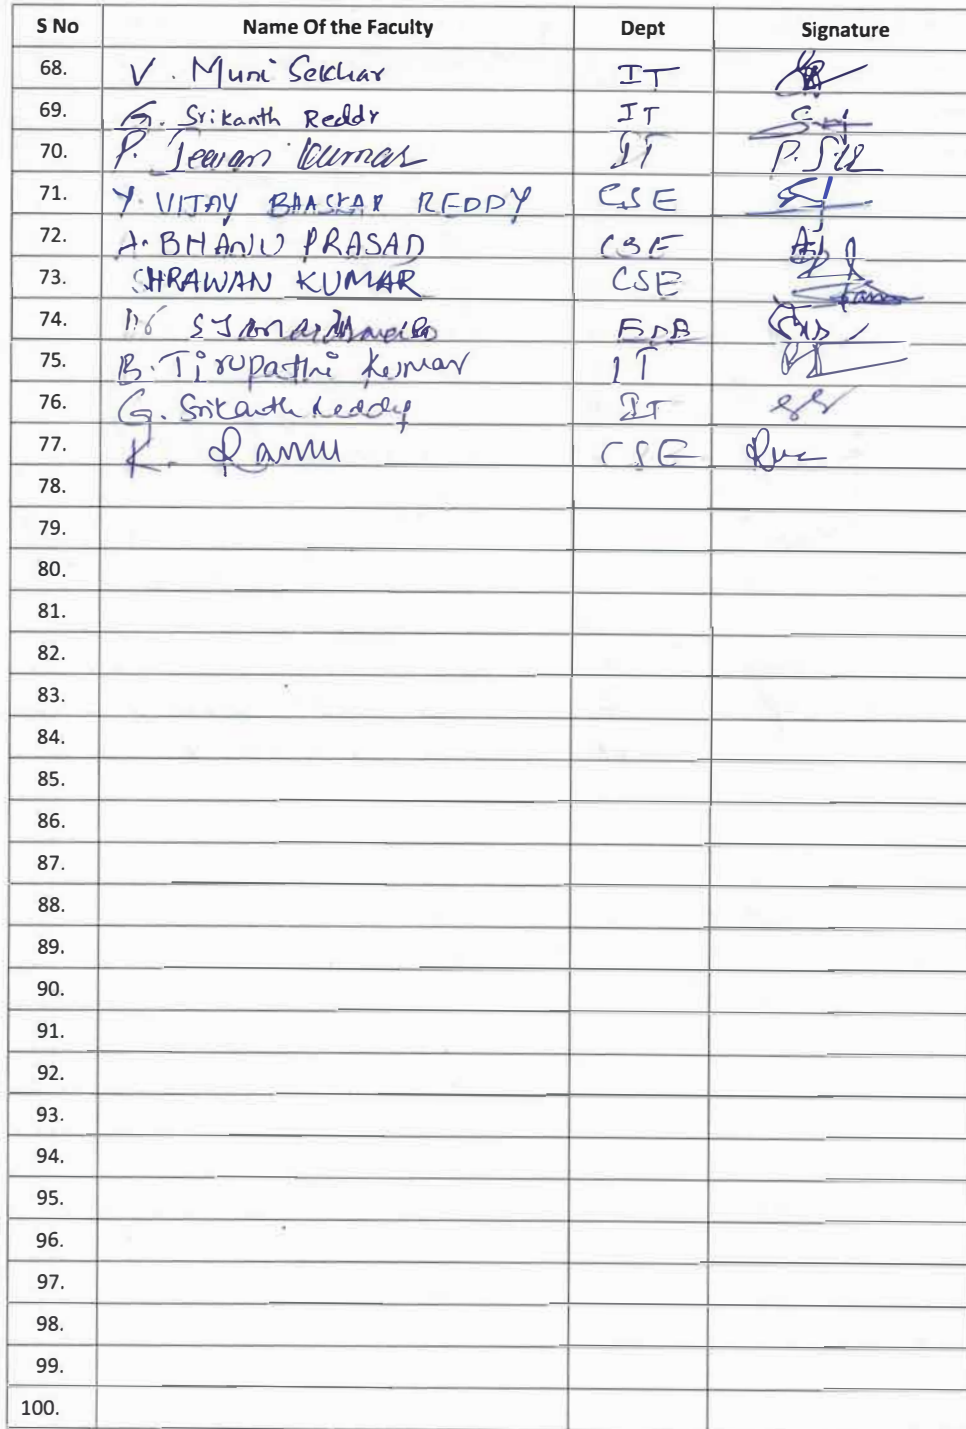 S No Name Of the Faculty Dept Signature
68. V. Muni Sekhar IT
69. G. Srikanth Reddy IT
70. P. Jeevan Kumar IT
71. Y. VIJAY BHASKAR REDDY CSE
72. A. BHANU PRASAD CSE
73. SHRAWAN KUMAR CSE
74.
75. B. Tirupathi Kumar IT
76. G. Srikanth Reddy IT
77. K. Ramu CSE
78.
79.
80.
81.
82.
83.
84.
85.
86.
87.
88.
89.
90.
91.
92.
93.
94.
95.
96.
97.
98.
99.
100.